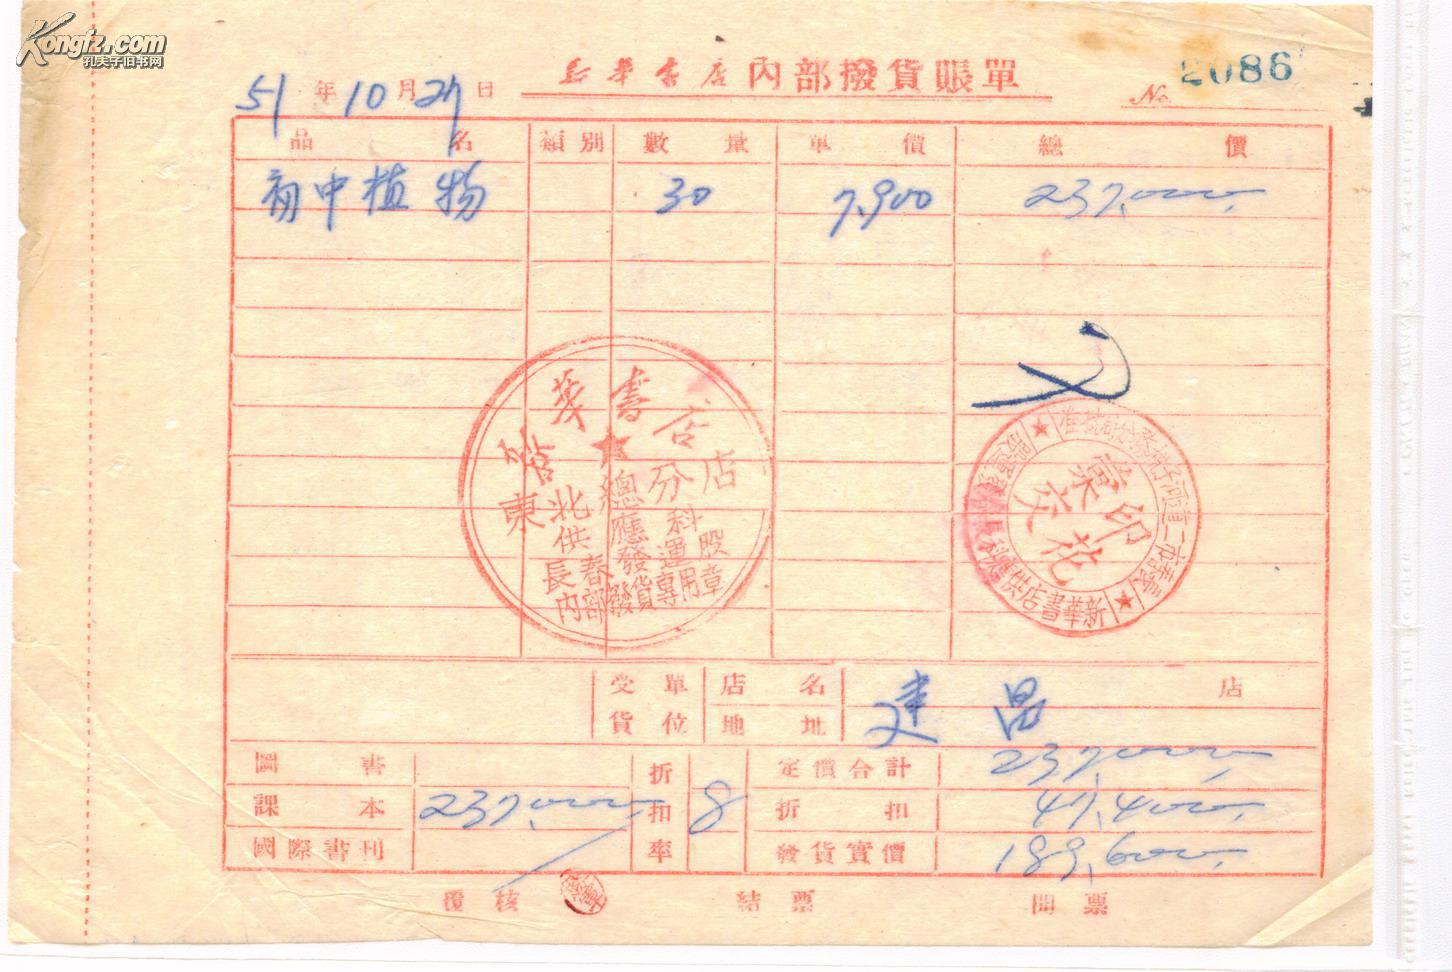 Kongfz.com
孔夫子旧书网
新華書店內部撥貨賬單
№ 2086
51年10月27日
品名 類別 數量 單價 總價
初中植物 30 7,900 237,000
新華書店
東北總分店
供應科
長春發運股
內部發貨專用章
印花
彙交
新華書店供應科長春發運股
受貨單位 店名 建昌 店
地址
圖書 折扣率 8 定價合計 237,000
課本 237,000 折扣 47,400
國際書刊 發貨實價 189,600
覆核 結票 開票